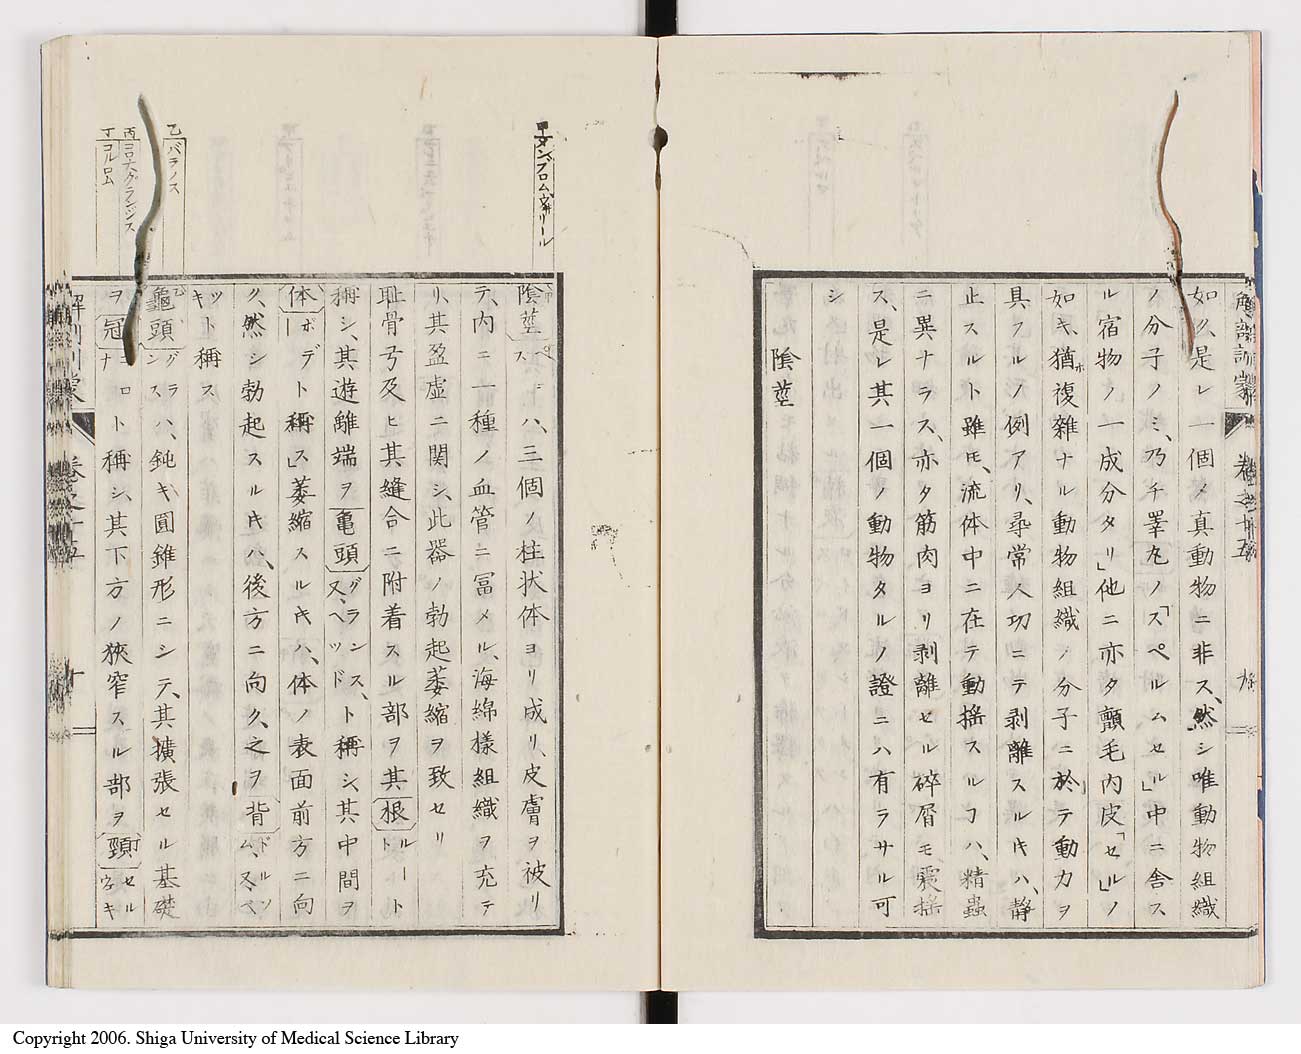 如ク、是レ一個ノ真動物ニ非ス、然シ唯動物組織
ノ分子ノミ、乃チ睪丸ノ「スペルムセル」中ニ舎ス
ル宿物ノ一成分タリ」他ニ亦タ顫毛内皮「セル」ノ
如キ、猶ホ複雑ナル動物組織ノ分子ニ於テ動力ヲ
具フルノ例アリ、尋常人功ニテ剥離スルキハ、静
止スルト雖𪜈、流体中ニ在テ動揺スルヿハ、精蟲
ニ異ナラス、亦タ筋肉ヨリ剥離セル碎屑モ震揺
ス、是レ其一個ノ動物タルノ證ニハ有ラサル可
シ
陰莖
解剖訓蒙
巻之十五
九
甲 メンブロム、ウヰリール
陰莖 ペニス ハ、三個ノ柱状体ヨリ成リ、皮膚ヲ被リ
テ、内ニ一種ノ血管ニ冨メル、海綿樣組織ヲ充テ
リ、其盈虚ニ関シ、此器ノ勃起萎縮ヲ致セリ
耻骨弓及ヒ其縫合ニ附着スル部ヲ其根 ルート
稱シ、其遊離端ヲ亀頭 グランス、又、ヘッド ト稱シ、其中間ヲ
体 ボデー ト稱ス」萎縮スルキハ、体ノ表面前方ニ向
ク、然シ勃起スルキハ、後方ニ向ク、之ヲ背 ドルソム、又、ベッキ
ト稱ス
龜頭 グランス ハ、鈍キ圓錐形ニシテ、其擴張セル基礎
ヲ冠 コロナ ト稱シ、其下方ノ狹窄スル部ヲ頸 セルウキ
乙 バラノス
丙 コロナ、グランジス
丁 コルロム
解剖訓蒙
巻之十五
十
Copyright 2006. Shiga University of Medical Science Library